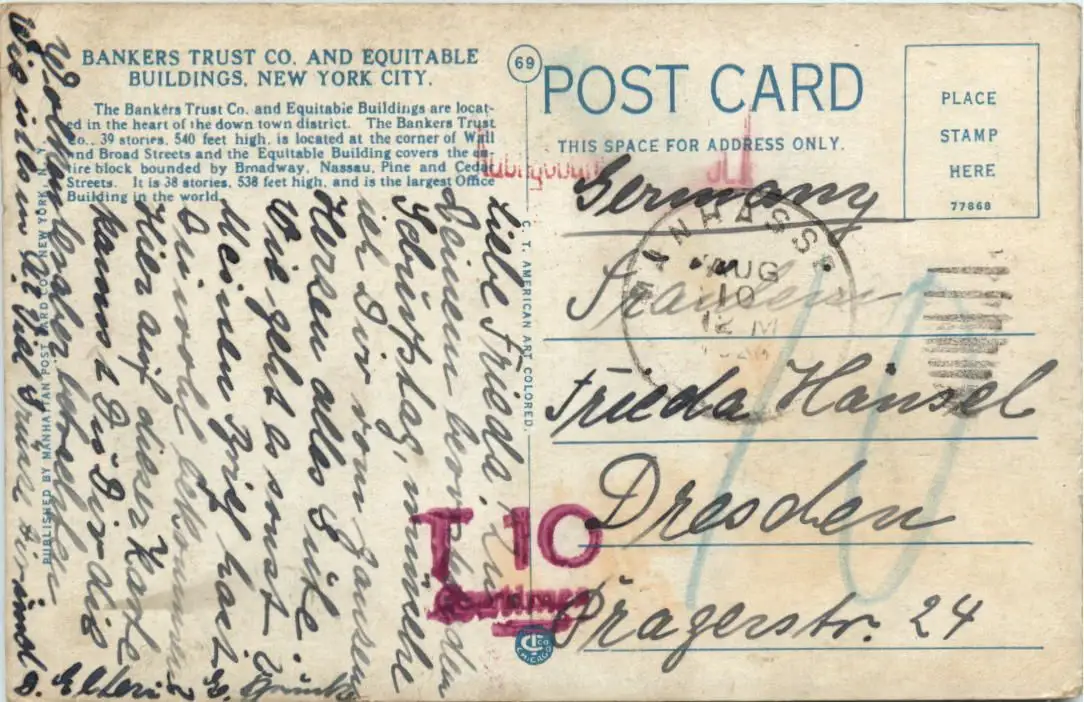 BANKERS TRUST CO. AND EQUITABLE
BUILDINGS, NEW YORK CITY.
The Bankers Trust Co. and Equitable Buildings are locat-
ed in the heart of the down town district. The Bankers Trust
Co., 39 stories, 540 feet high, is located at the corner of Wall
and Broad Streets and the Equitable Building covers the en-
tire block bounded by Broadway, Nassau, Pine and Cedar
Streets. It is 38 stories, 538 feet high, and is the largest Office
Building in the world.
69
POST CARD
THIS SPACE FOR ADDRESS ONLY.
PLACE
STAMP
HERE
77868
Germany
Fräulein
Frieda Hänsel
Dresden
Pragerstr. 24
MANHASSE
AUG
10
12 M
10
T 10
Centimes
C. T. AMERICAN ART COLORED.
PUBLISHED BY MANHATTAN POST CARD CO., NEW YORK, N. Y.
CT CO.
CHICAGO
Liebe Frieda,
Deinem
wünsche
ich Dir vom ganzen
Herzen alles Gute.
Wie geht es sonst?
Meinen Brief hast
Du wohl bekommen
Hier auf dieser Karte
kannst Du Dir die
Wolkenkratzer
Viel Grüße
d. Eltern